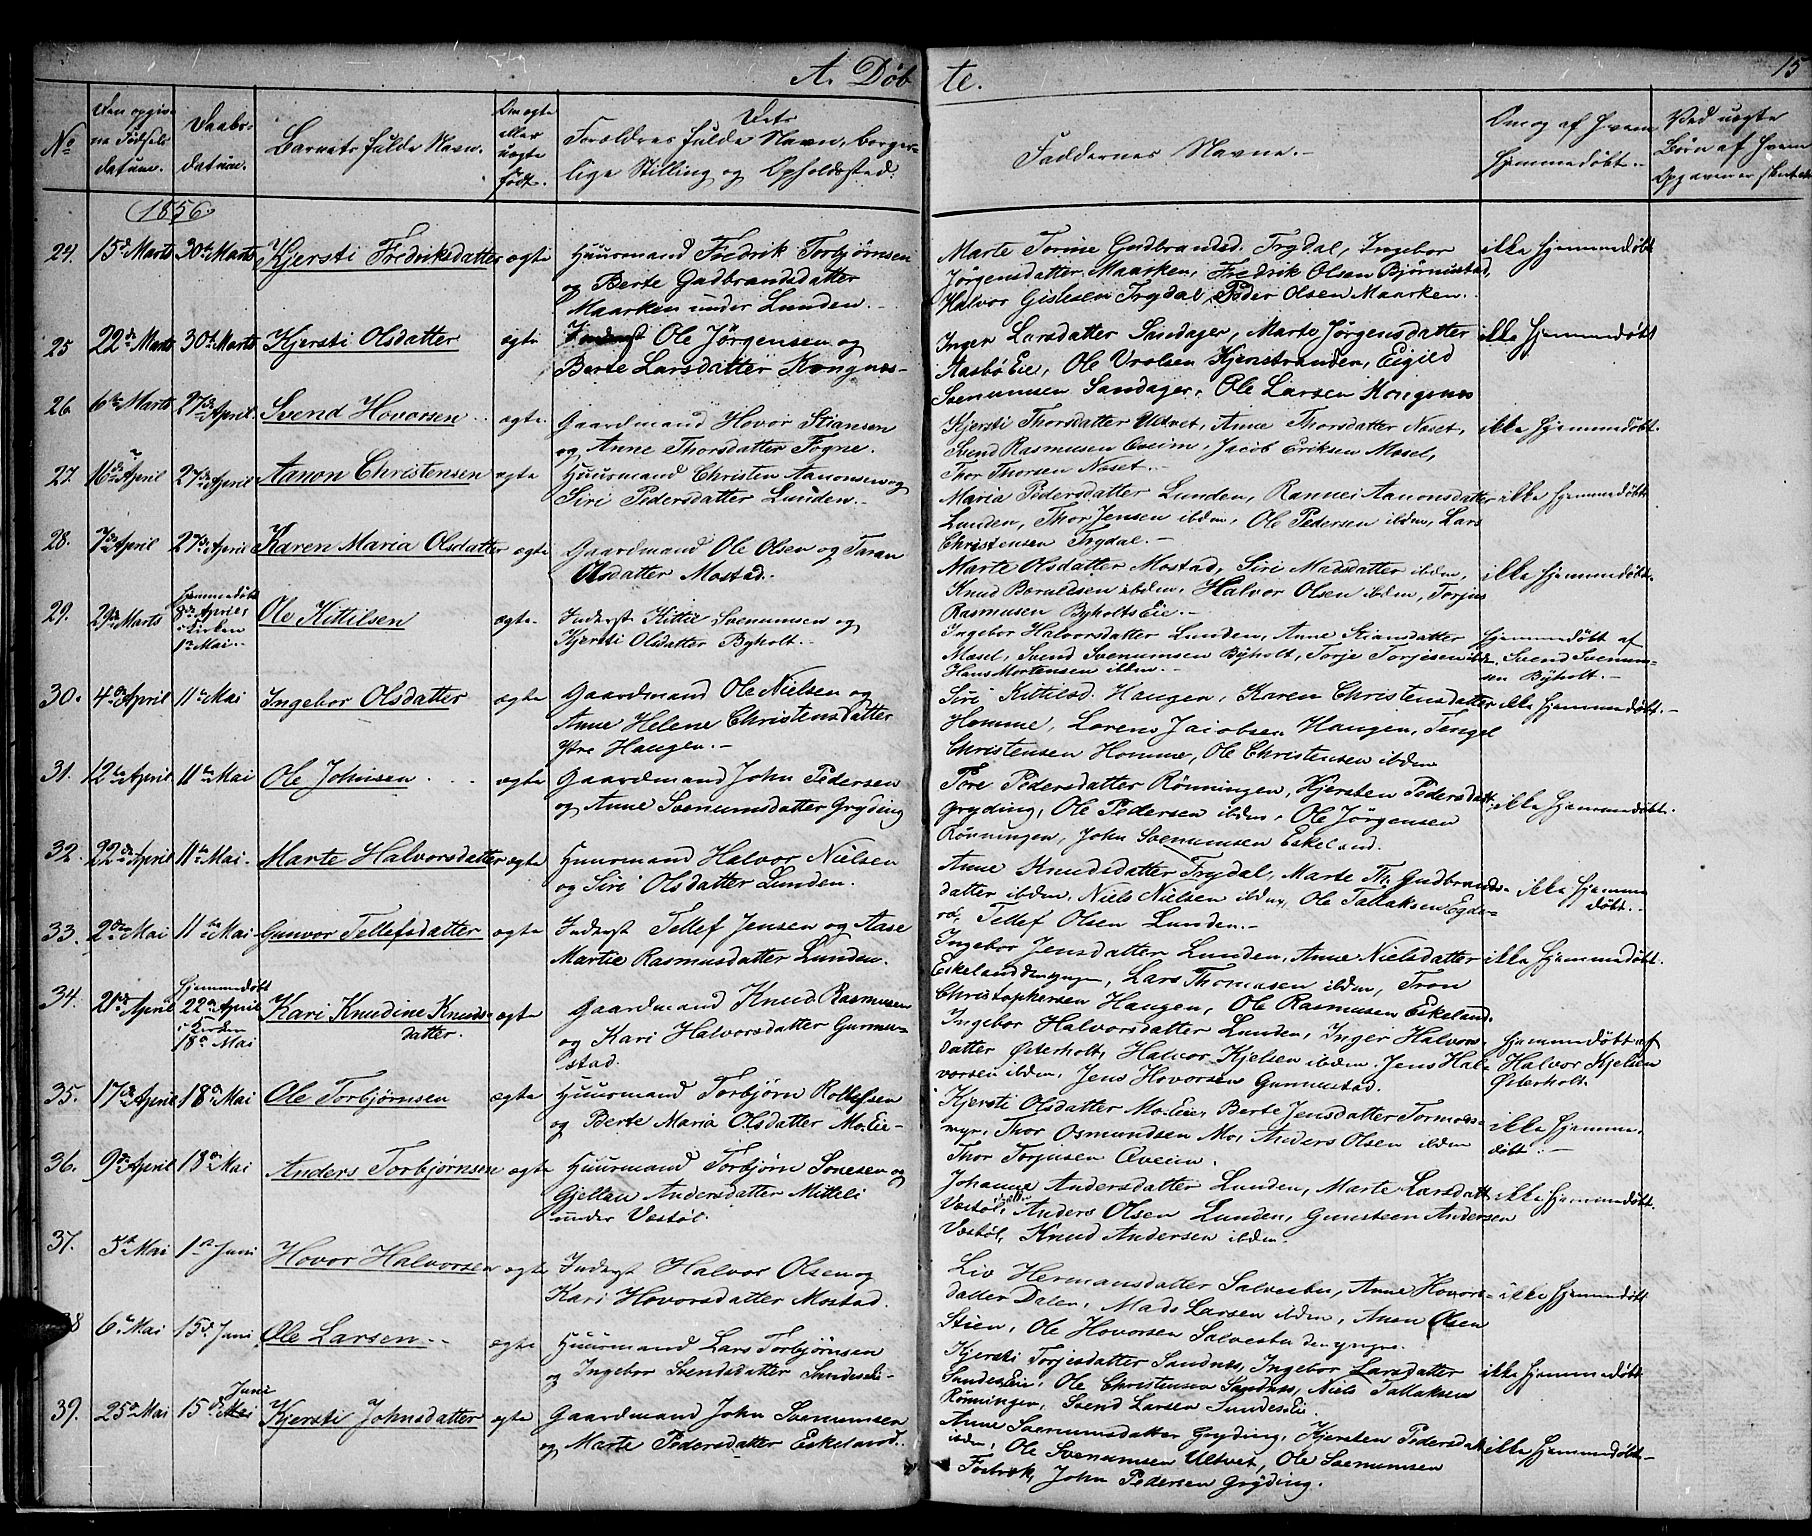 A. Døbte.
15
No
Den opgivne Fødselsdatum.
Daabsdatum.
Barnets fulde Navn.
Om ægte eller uægte født.
Dets Forældres fulde Navn, borgerlige Stilling og Opholdssted.
Faddernes Navne.
Om og af hvem hjemmedøbt.
Ved uægte Børn af hvem Opgaven er skeet
1856.
24. 15de Marts 30te Marts Kjersti Fredriksdatter ægte Huusmand Fredrik Torbjørnsen
og Berte Gudbrandsdatter
Maarken under Lunden.
Marte Torine Gudbrandsd. Trydal, Ingebor
Jørgensdatter Maarken, Fredrik Olsen Bjørnistad,
Halvor Gislesen Trydal, Peder Olsen Maarken.
ikke hjemmedøbt
25 22de Marts 30te Marts Kjersti Olsdatter ægte Inderst Ole Jørgensen og
Berte Larsdatter Kongnæs
Inger Larsdatter Sandager, Marte Jørgensdatter
Aasbø Eie, Ole Vrolsen Kjenstranden, Eigild
Svenumsen Sandager, Ole Larsen Kongsnæs
ikke hjemmedøbt
26. 6te Marts 27de April Svend Hovorsen ægte Gaardmand Hovor Stiansen
og Anne Thorsdatter Fogne.
Kjersti Thorsdatter Ultvet, Anne Thorsdatter Naset,
Svend Rasmusen Aveim, Jacob Eriksen Mosel,
Thor Thorsen Naset.
ikke hjemmedøbt.
27. 16de April 27de April Aanon Christensen ægte Huusmand Christen Aanonsen og
Siri Pedersdatter Lunden.
Maria Pedersdatter Lunden, Rannei Aanonsdatter
Lunden, Thor Jensen ibdm, Ole Pedersen ibdm, Lars
Christensen Trydal.
ikke hjemmedøbt
28. 7de April 27de April Karen Maria Olsdatter ægte Gaardmand Ole Olsen og Taran
Olsdatter Mostad.
Marte Olsdatter Mostad, Siri Madsdatter ibdm,
Knud Boraldsen ibdm, Halvor Olsen ibdm, Torjus
Rasmusen Byholts Eie.
ikke hjemmedøbt.
29. 29de Marts Hjemmedøbt
8de April,
i Kirken
1te Mai.
Ole Kittilsen ægte Inderst Kittil Svenumsen og
Kjersti Olsdatter Byholt.
Ingebor Halvorsdatter Lunden, Anne Stiansdatter
Mosel, Svend Svenumsen Byholt, Torje Torjesen ibdm,
Hans Mortensen ibdm.
Hjemmedøbt af
Svend Svenumsen Byholt.
30. 4de April 11te Mai Ingebor Olsdatter ægte Gaardmand Ole Nielsen og
Anne Helene Christensdatter
Ytre Haugen.
Siri Kittelsd. Haugen, Karen Christensdatter
Homme, Lorens Jacobsen Haugen, Tengel
Christensen Homme, Ole Christensen ibdm
ikke hjemmedøbt.
31. 12te April 11te Mai Ole Johnsen ægte Gaardmand John Pedersen
og Anne Svenumsdatter Gryding
Tore Pedersdatter Rönningen, Kjersten Pedersdatt.
Gryding, Ole Pedersen ibdm, Ole Jørgensen
Rönningen, John Svenumsen Eskeland.
ikke hjemmedøbt.
32. 22de April 11te Mai. Marte Halvorsdatter ægte Huusmand Halvor Nielsen
og Siri Olsdatter Lunden.
Anne Knudsdatter Trydal, Marte Th. Gudbrandsdatter ibdm, Niels Nielsen ibdm, Ole Tallaksen Egderø, Tellef Olsen Lunden.
ikke hjemmedøbt.
33. 2den Mai 11te Mai Gunvor Tellefsdatter ægte Inderst Tellef Jensen og Aase
Martie Rasmusdatter Lunden.
Ingebor Jensdatter Lunden, Anne Nielsdatter
Eskeland den yngre, Lars Thomasen ibdm, Tron
Christophersen Haugen, Ole Rasmusen Eskeland.
ikke hjemmedøbt.
34. 21de April Hjemmedøbt
22de April
i Kirken
18de Mai
Kari Knudine Knudsdatter. ægte Gaardmand Knud Rasmusen
og Kari Halvorsdatter Gurmustad.
Ingebor Halvorsdatter Lunden, Inger Halvorsdatter Østerholt, Halvor Kjelsen ibdm, Jens Halvorsen ibdm, Jens Hovorsen Gurmustad.
Hjemmedøbt af
Halvor Kjelsen
Østerholt.
35. 17de April 18de Mai Ole Torbjørnsen ægte Huusmand Torbjørn Rollefsen
og Berte Maria Olsdatter Mo Eie
Kjersti Olsdatter Mo Eie, Berte Jensdatter Tormodsmyr, Thor Osmundsen Mo, Anders Olsen ibdm
Thor Torjusen Aveim.
ikke hjemmedøbt.
36. 9de April 18de Mai Anders Torbjørnsen ægte Huusmand Torbjørn Sonesen og
Gjellau Andersdatter Mitteli
under Væstøl.
Johanne Andersdatter Lunden, Marte Larsdatt.
Væstøl, Anders Olsen Lunden, Gunsteen Andersen
Væstøl, Knud Andersen ibdm.
ikke hjemmedøbt.
37. 5te Mai 1te Juni Hovor Halvorsen ægte Inderst Halvor Olsen og
Kari Hovorsdatter Mostad.
Liv Hermansdatter Salvestu, Anne Hovorsdatter Dalen, Mads Larsen ibdm, Aanon Olsen
Stien, Ole Hovorsen Salvestu den yngre.
ikke hjemmedøbt
38 6te Mai 15de Juni Ole Larsen ægte Huusmand Lars Torbjørnsen
og Ingebor Svendsdatter Sundes Eie
Kjersti Torjesdatter Sandnæs, Ingebor Larsdatter
Sundes Eie, Ole Christensen Sandnæs, Niels Tallaksen
Rönningen, Svend Larsen Sundes Eie.
ikke hjemmedøbt.
39. 25de Mai 15de Juni Kjersti Johnsdatter ægte Gaardmand John Svenumsen
og Marte Pedersdatter Eskeland.
Anne Svenumsdatter Gryding, Kjersten Pedersdatt
ibdm, Ole Svenumsen Ultvet, Ole Svenumsen
Fosbrok, John Pedersen Gryding.
ikke hjemmedøbt.